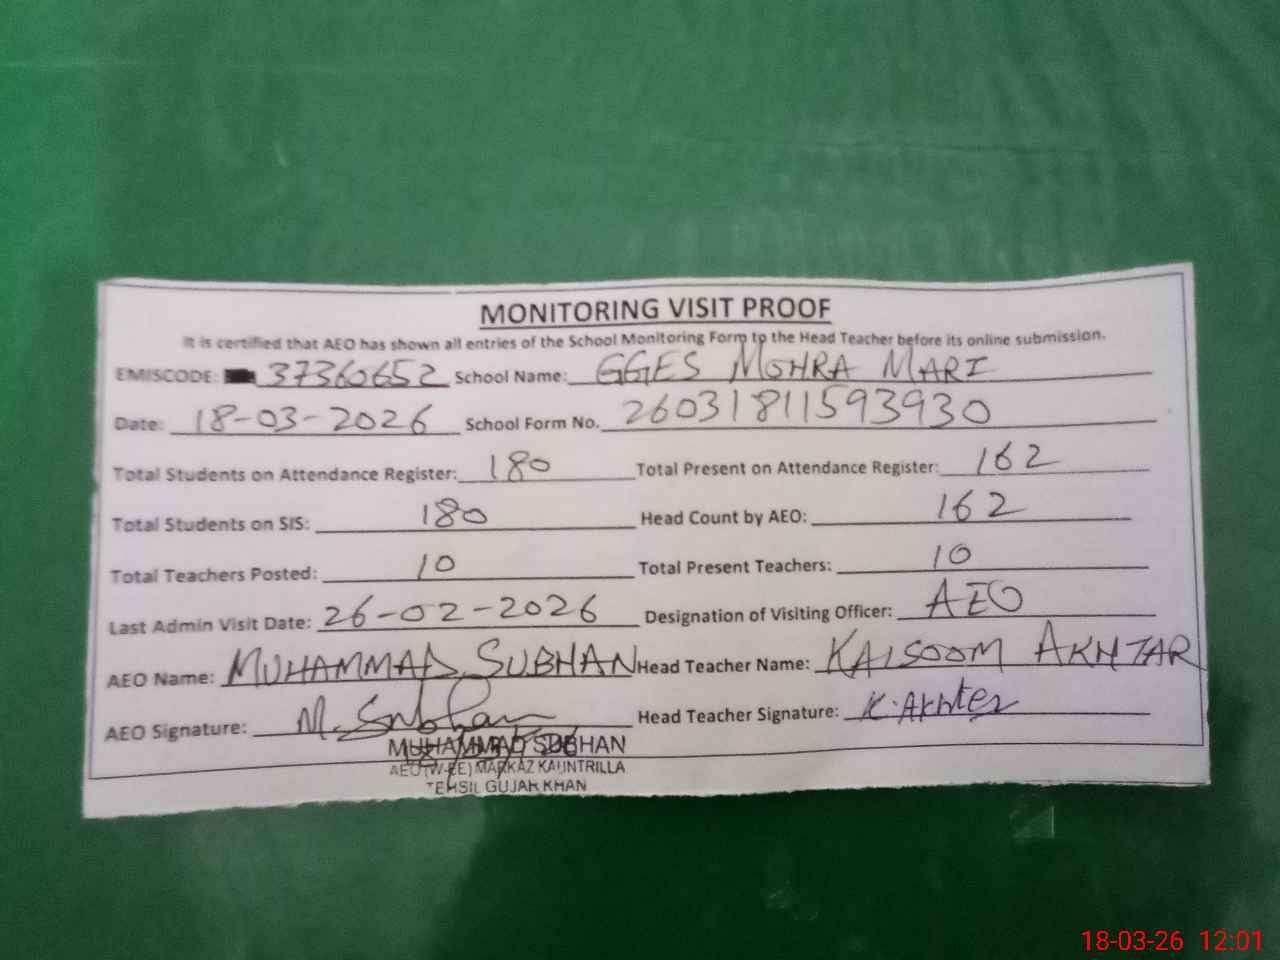 MONITORING VISIT PROOF
It is certified that AEO has shown all entries of the School Monitoring Form to the Head Teacher before its online submission.
EMISCODE: 37360652 School Name: GGES MOHRA MARI
Date: 18-03-2026 School Form No. 26031811593930
Total Students on Attendance Register: 180 Total Present on Attendance Register: 162
Total Students on SIS: 180 Head Count by AEO: 162
Total Teachers Posted: 10 Total Present Teachers: 10
Last Admin Visit Date: 26-02-2026 Designation of Visiting Officer: AEO
AEO Name: MUHAMMAD SUBHAN Head Teacher Name: KALSOOM AKHTAR
AEO Signature: M. Subhan Head Teacher Signature: K. Akhter
MUHAMMAD SUBHAN
AEO (W-EE) MARKAZ KAUNTRILLA
TEHSIL GUJAR KHAN
18-03-26 12:01